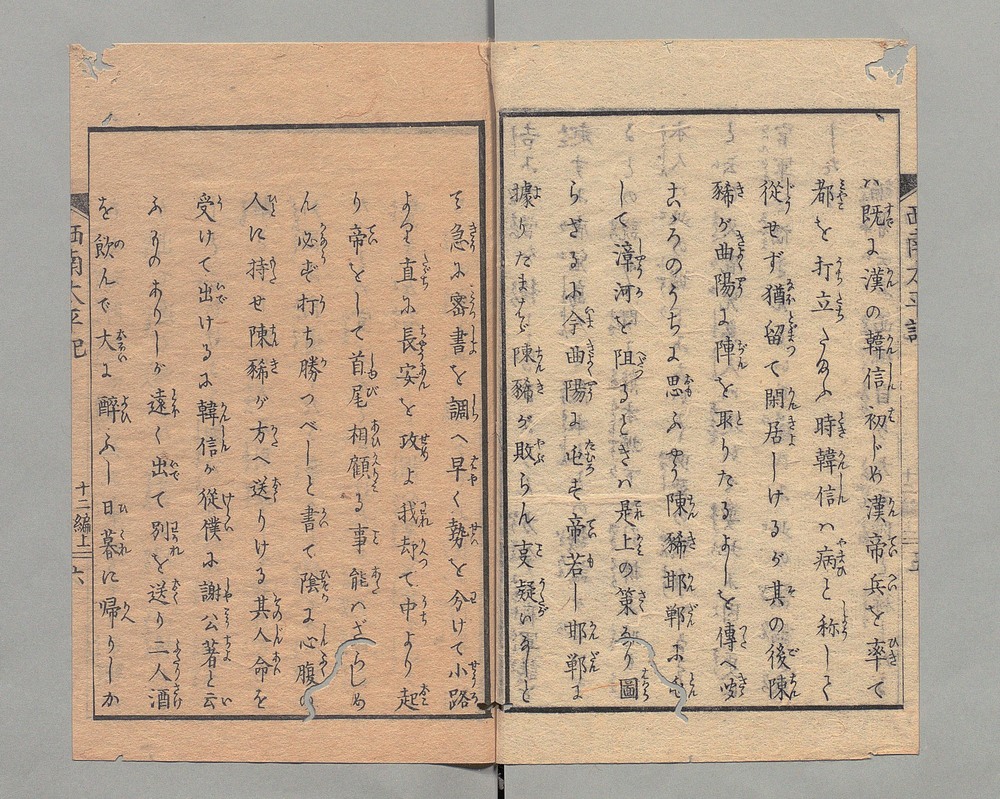 ハ既に漢の韓信初じめ漢帝兵を率て
都を打立たまふ時韓信ハ病と称して
従せず猶留て閑居しけるが其の後陳
豨が曲陽に陣を取りたるよしを傳へ
こゝろのうちに思ふやう陳豨邯鄲に
して漳河を阻るときハ是上の策なり圖
らざるに今曲陽に屯す帝若し邯鄲に
據りたまはゞ陳豨が敗らん事疑いなしと
て急に密書を調へ早く勢を分けて小路
より直に長安を政よ我却て中より起
り帝をして首尾相顧る事能ハざらしめ
ん必ず打ち勝つべしと書て陰に心腹の
人に持せ陳豨が方へ送りける其人命を
受けて出けるに韓信が従僕に謝公著と云
ふものありしが遠く出て別を送り二人酒
を飲んで大に醉ふし日暮に帰りしか
西南太平記
十二編上
六